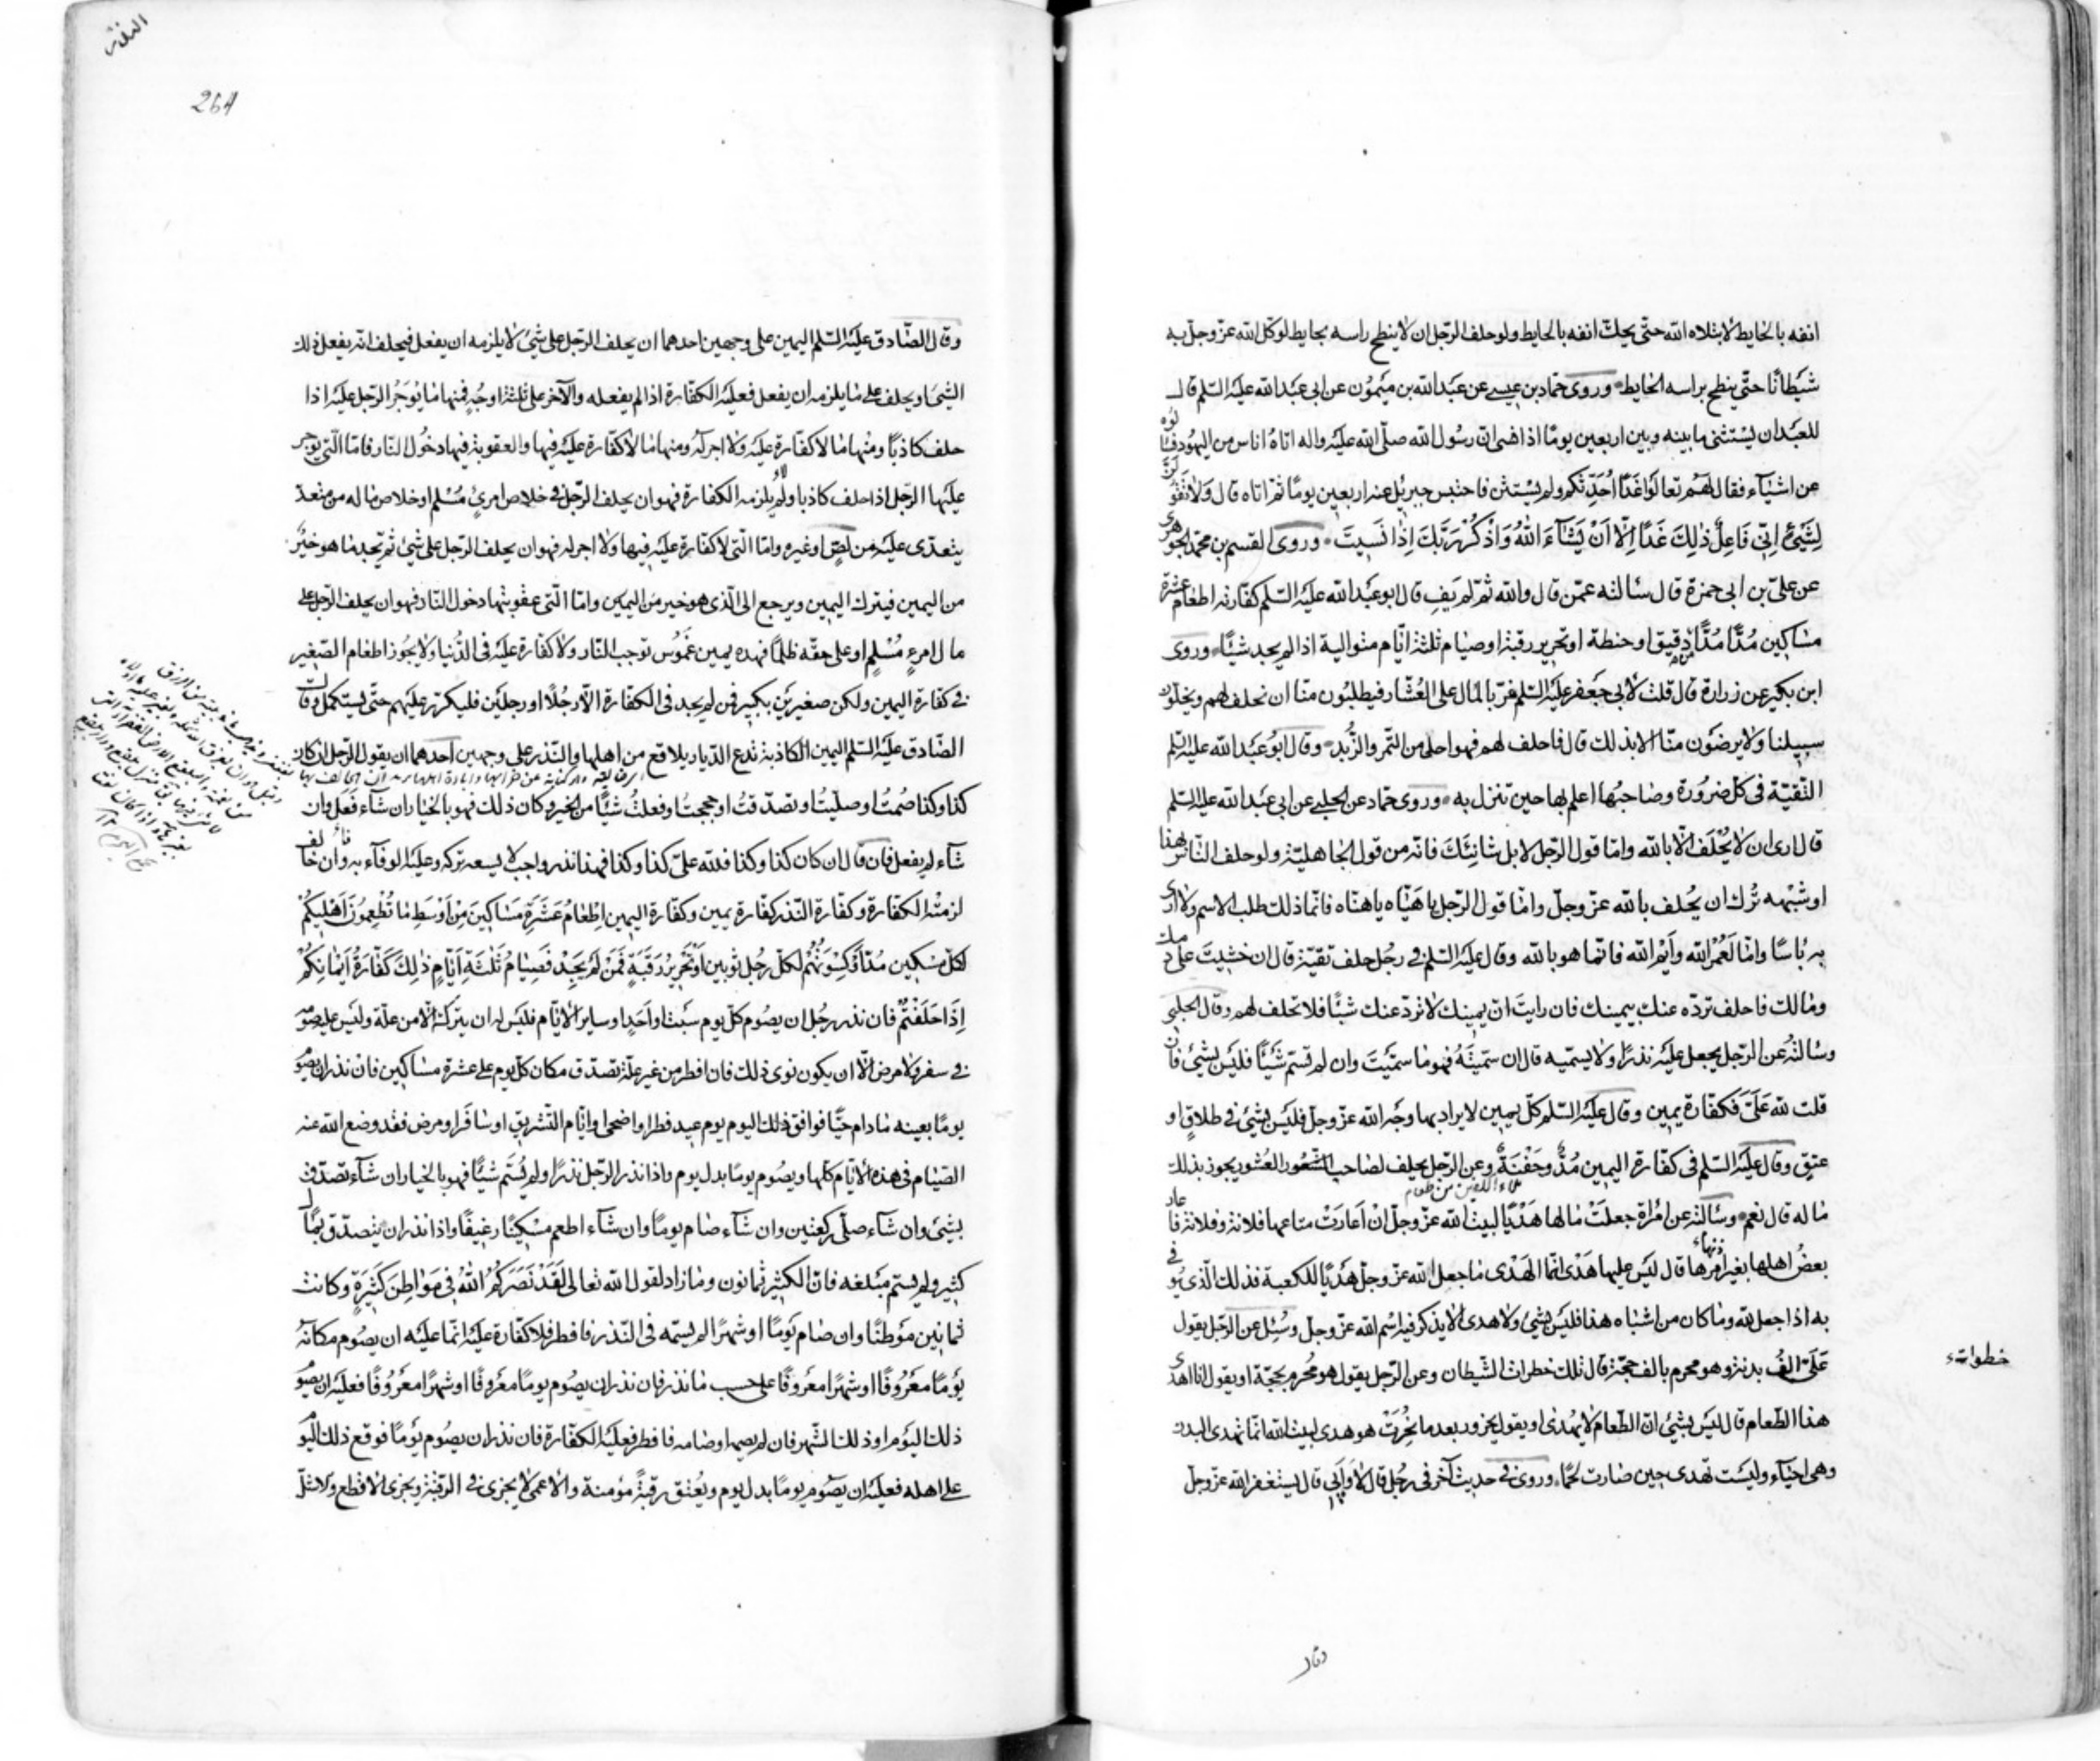 انفه بالحايط لابتلاه الله حتّى يحكّ انفه بالحايط ولو حلف الرّجل ان لا ينطح راسه بحايط لوكّل الله عزّ وجلّ به
شيطانًا حتّى ينطح براسه الحايط وروى حمّاد بن عيسى عن عبد الله بن ميمون عن ابى عبد الله عليه السّلم قال
للعبد ان يستثنى ما بينه وبين اربعين يومًا اذا نسى انّ رسول الله صلّى الله عليه واله اتاه اناس من اليهود فسالوه
عن اشياء فقال لهم تعالوا غدًا احدّثكم ولم يستثن فاحتبس جبريل عنه اربعين يومًا ثمّ اتاه قال ولا تقولنّ
لِشَيْءٍ اِنّى فَاعِلٌ ذٰلِكَ غَدًا اِلّا اَنْ يَشَآءَ اللّٰهُ وَاذْكُرْ رَبَّكَ اِذَا نَسِيتَ وروى القسم بن محمّد الجوهرى
عن علىّ بن ابى حمزة قال سالته عمّن قال والله ثمّ لم يف قال ابو عبد الله عليه السّلم كفّارته اطعام عشرة
مساكين مُدًّا مُدًّا دقيق او حنطة او تحرير رقبة او صيام ثلثة ايّام متوالية اذا لم يجد شيئًا وروى
ابن بكير عن زرارة قال قلت لابى جعفر عليه السّلم نمرّ بالمال على العُشّار فيطلبون منّا ان نحلف لهم ويخلّون
سبيلنا ولا يرضون منّا الا بذلك قال فاحلف لهم فهو احلى من التّمر والزُّبد وقال ابو عبد الله عليه السّلم
التّقيّة فى كلّ ضرورة وصاحبها اعلم بها حين تنزل به وروى حمّاد عن الحلبى عن ابى عبد الله عليه السّلم
قال ارى ان لا يُحْلَف الّا بالله وامّا قول الرّجل لا بل شانيك فانّه من قول الجاهليّة ولو حلف النّاس بهذا
او شبهه تُرك ان يُحلف بالله عزّ وجلّ وامّا قول الرّجل يا هياه يا هناه فانّما ذلك طلب الاسم ولا ارى
به باسًا وامّا لَعَمْرُ الله وأيم الله فانّما هو بالله وقال عليه السّلم فى رجل حلف تقيّة قال ان خشيت على دمك
ومالك فاحلف تردّه عنك بيمينك فان رايت انّ يمينك لا تردّ عنك شيئًا فلا تحلف لهم وقال الحلبى
وسالته عن الرّجل يجعل عليه نذرًا ولا يسمّيه قال ان سمّيته فهو ما سمّيت وان لم تسمّ شيئًا فليس بشئ فان
قلت لله عَلَىَّ فكفّارة يمين وقال عليه السّلم كلّ يمين لا يراد بها وجه الله عزّ وجلّ فليس بشئ فى طلاق او
عتق وقال عليه السّلم فى كفّارة اليمين مُدٌّ وحَفْنَةٌ وعن الرّجل يحلف لصاحب العشور يجوز بذلك
ملاء الكفين من طعام
ماله قال نعم وسالته عن امراة جعلت مالها هَدْيًا لبيت الله عزّ وجلّ ان اعارت متاعها فلانة وفلانة فاعار
بعضُ اهلها بغير امرها قال ليس عليها هَدْى انّما الهَدْى ما جعل الله عزّ وجلّ هَدْيًا للكعبة فذلك الّذى يوفى
به اذا جعل لله وما كان من اشباه هذا فليس بشئ ولا هدى لا يذكر فيه اسم الله عزّ وجلّ وسُئل عن الرّجل يقول
عَلَىّ الف بدنة وهو محرم بالف حجّة قال تلك خطرات الشّيطان وعن الرّجل يقول هو مُحْرم بحجّة او يقول انا اهدى
خطوات
هذا الطّعام قال ليس بشئ انّ الطّعام لا يُهدى او يقول لجزور بعد ما نُحِرَتْ هو هدى لبيت الله انّما تُهدى البدن
وهى احياء وليست تهدى حين صارت لحمًا وروى فى حديث آخر فى رجل قال لا وابى قال يستغفر الله عزّ وجلّ
وقال
264
وقال الصّادق عليه السّلم اليمين على وجهين احدهما ان يحلف الرّجل على شئ لا يلزمه ان يفعل فيحلف انّه يفعل ذلك
الشئ او يحلف على ما يلزمه ان يفعل فعليه الكفّارة اذا لم يفعله والآخر على ثلثة اوجه فمنها ما يوجر الرّجل عليه اذا
حلف كاذبًا ومنها ما لا كفّارة عليه ولا اجر له ومنها ما لا كفّارة عليه فيها والعقوبة فيها دخول النّار فامّا الّتى يوجر
عليها الرّجل اذا حلف كاذبا ولم يلزمه الكفارة فهو ان يحلف الرّجل فى خلاص امرئ مُسْلم او خلاص ماله من متعدّ
يتعدّى عليه من لصّ او غيره وامّا الّتى لا كفارة عليه فيها ولا اجر له فهو ان يحلف الرّجل على شئ ثمّ يجد ما هو خيرٌ
من اليمين فيترك اليمين ويرجع الى الّذى هو خير من اليمين وامّا الّتى عقوبتها دخول النّار فهو ان يحلف الرّجل على
مال امرء مُسْلم او على حقّه ظلمًا فهذه يمين غَمُوس توجب النّار ولا كفّارة عليه فى الدّنيا ولا يجوز اطعام الصّغير
فى كفارة اليمين ولكن صغيرين بكبير فمن لم يجد فى الكفّارة الّا رجُلًا او رجلين فليكرّر عليهم حتّى يستكمل وقال
الصّادق عليه السّلم اليمين الكاذبة تدع الدّيار بلاقع من اهلها والنّذر على وجهين احدهما ان يقول الرّجل ان كان
كذا وكذا صُمتُ او صلّيتُ او تصدّقتُ او حججتُ او فعلتُ شيئًا من الخير وكان ذلك فهو بالخيار ان شآء فعل وان
شآء لم يفعل فان قال ان كان كذا وكذا فللّه علىّ كذا وكذا فهذا نذر واجب لا يسعه تركه وعليه الوفآء به وان خالف
لزمته الكفّارة وكفّارة النّذر كفّارة يمين وكفّارة اليمين اِطْعَامُ عَشَرَةِ مَسَاكِينَ مِنْ اَوْسَطِ مَا تُطْعِمُونَ اَهْلِيكُمْ
لكلّ مسكين مُدّ اَوْ كِسْوَتُهُمْ لكلّ رجل ثوبين اَوْ تَحْرِيرُ رَقَبَةٍ فَمَنْ لَمْ يَجِدْ فَصِيَامُ ثَلٰثَةِ اَيَّامٍ ذٰلِكَ كَفَّارَةُ اَيْمَانِكُمْ
اِذَا حَلَفْتُمْ فان نذر رجل ان يصوم كلّ يوم سبت او احد او ساير الايّام فليس له ان يتركه الّا من علّة وليس عليه صوم
فى سفر ولا مرض الّا ان يكون نوى ذلك فان افطر من غير علّة تصدّق مكان كلّ يوم على عشرة مساكين فان نذر ان يصوم
يومًا بعينه ما دام حيًّا فوافق ذلك اليوم يوم عيد فطر او اضحى او ايّام التّشريق او سافر او مرض فقد وضع الله عنه
الصّيام فى هذه الايّام كلّها ويصوم يومًا بدل يوم واذا نذر الرّجل نذرًا ولم يُسَمّ شيئًا فهو بالخيار ان شآء تصدّق
بشئ وان شآء صلّى ركعتين وان شآء صام يومًا وان شآء اطعم مسكينًا رغيفًا واذا نذر ان يتصدّق بمال
كثير ولم يسمّ مبلغه فانّ الكثير ثمانون وما زاد لقول الله تعالى لَقَدْ نَصَرَكُمُ اللّٰهُ فِى مَوَاطِنَ كَثِيرَةٍ وكانت
ثمانين مَوْطنًا وان صام يومًا او شهرًا لم يسمّه فى النّذر فافطر فلا كفّارة عليه انّما عليه ان يصوم مكانه
يومًا معروفًا او شهرًا معروفًا على حسب ما نذر فان نذر ان يصوم يومًا معروفًا او شهرًا معروفًا فعليه ان يصوم
ذلك اليوم او ذلك الشّهر فان لم يصمه او صامه فافطر فعليه الكفّارة فان نذر ان يصوم يومًا فوقع ذلك اليوم
على اهله فعليه ان يصوم يومًا بدل يوم ويُعْتق رقبةً مؤمنة والاعمى لا يجزى فى الرّقبة ويجزى الاقطع والاشلّ